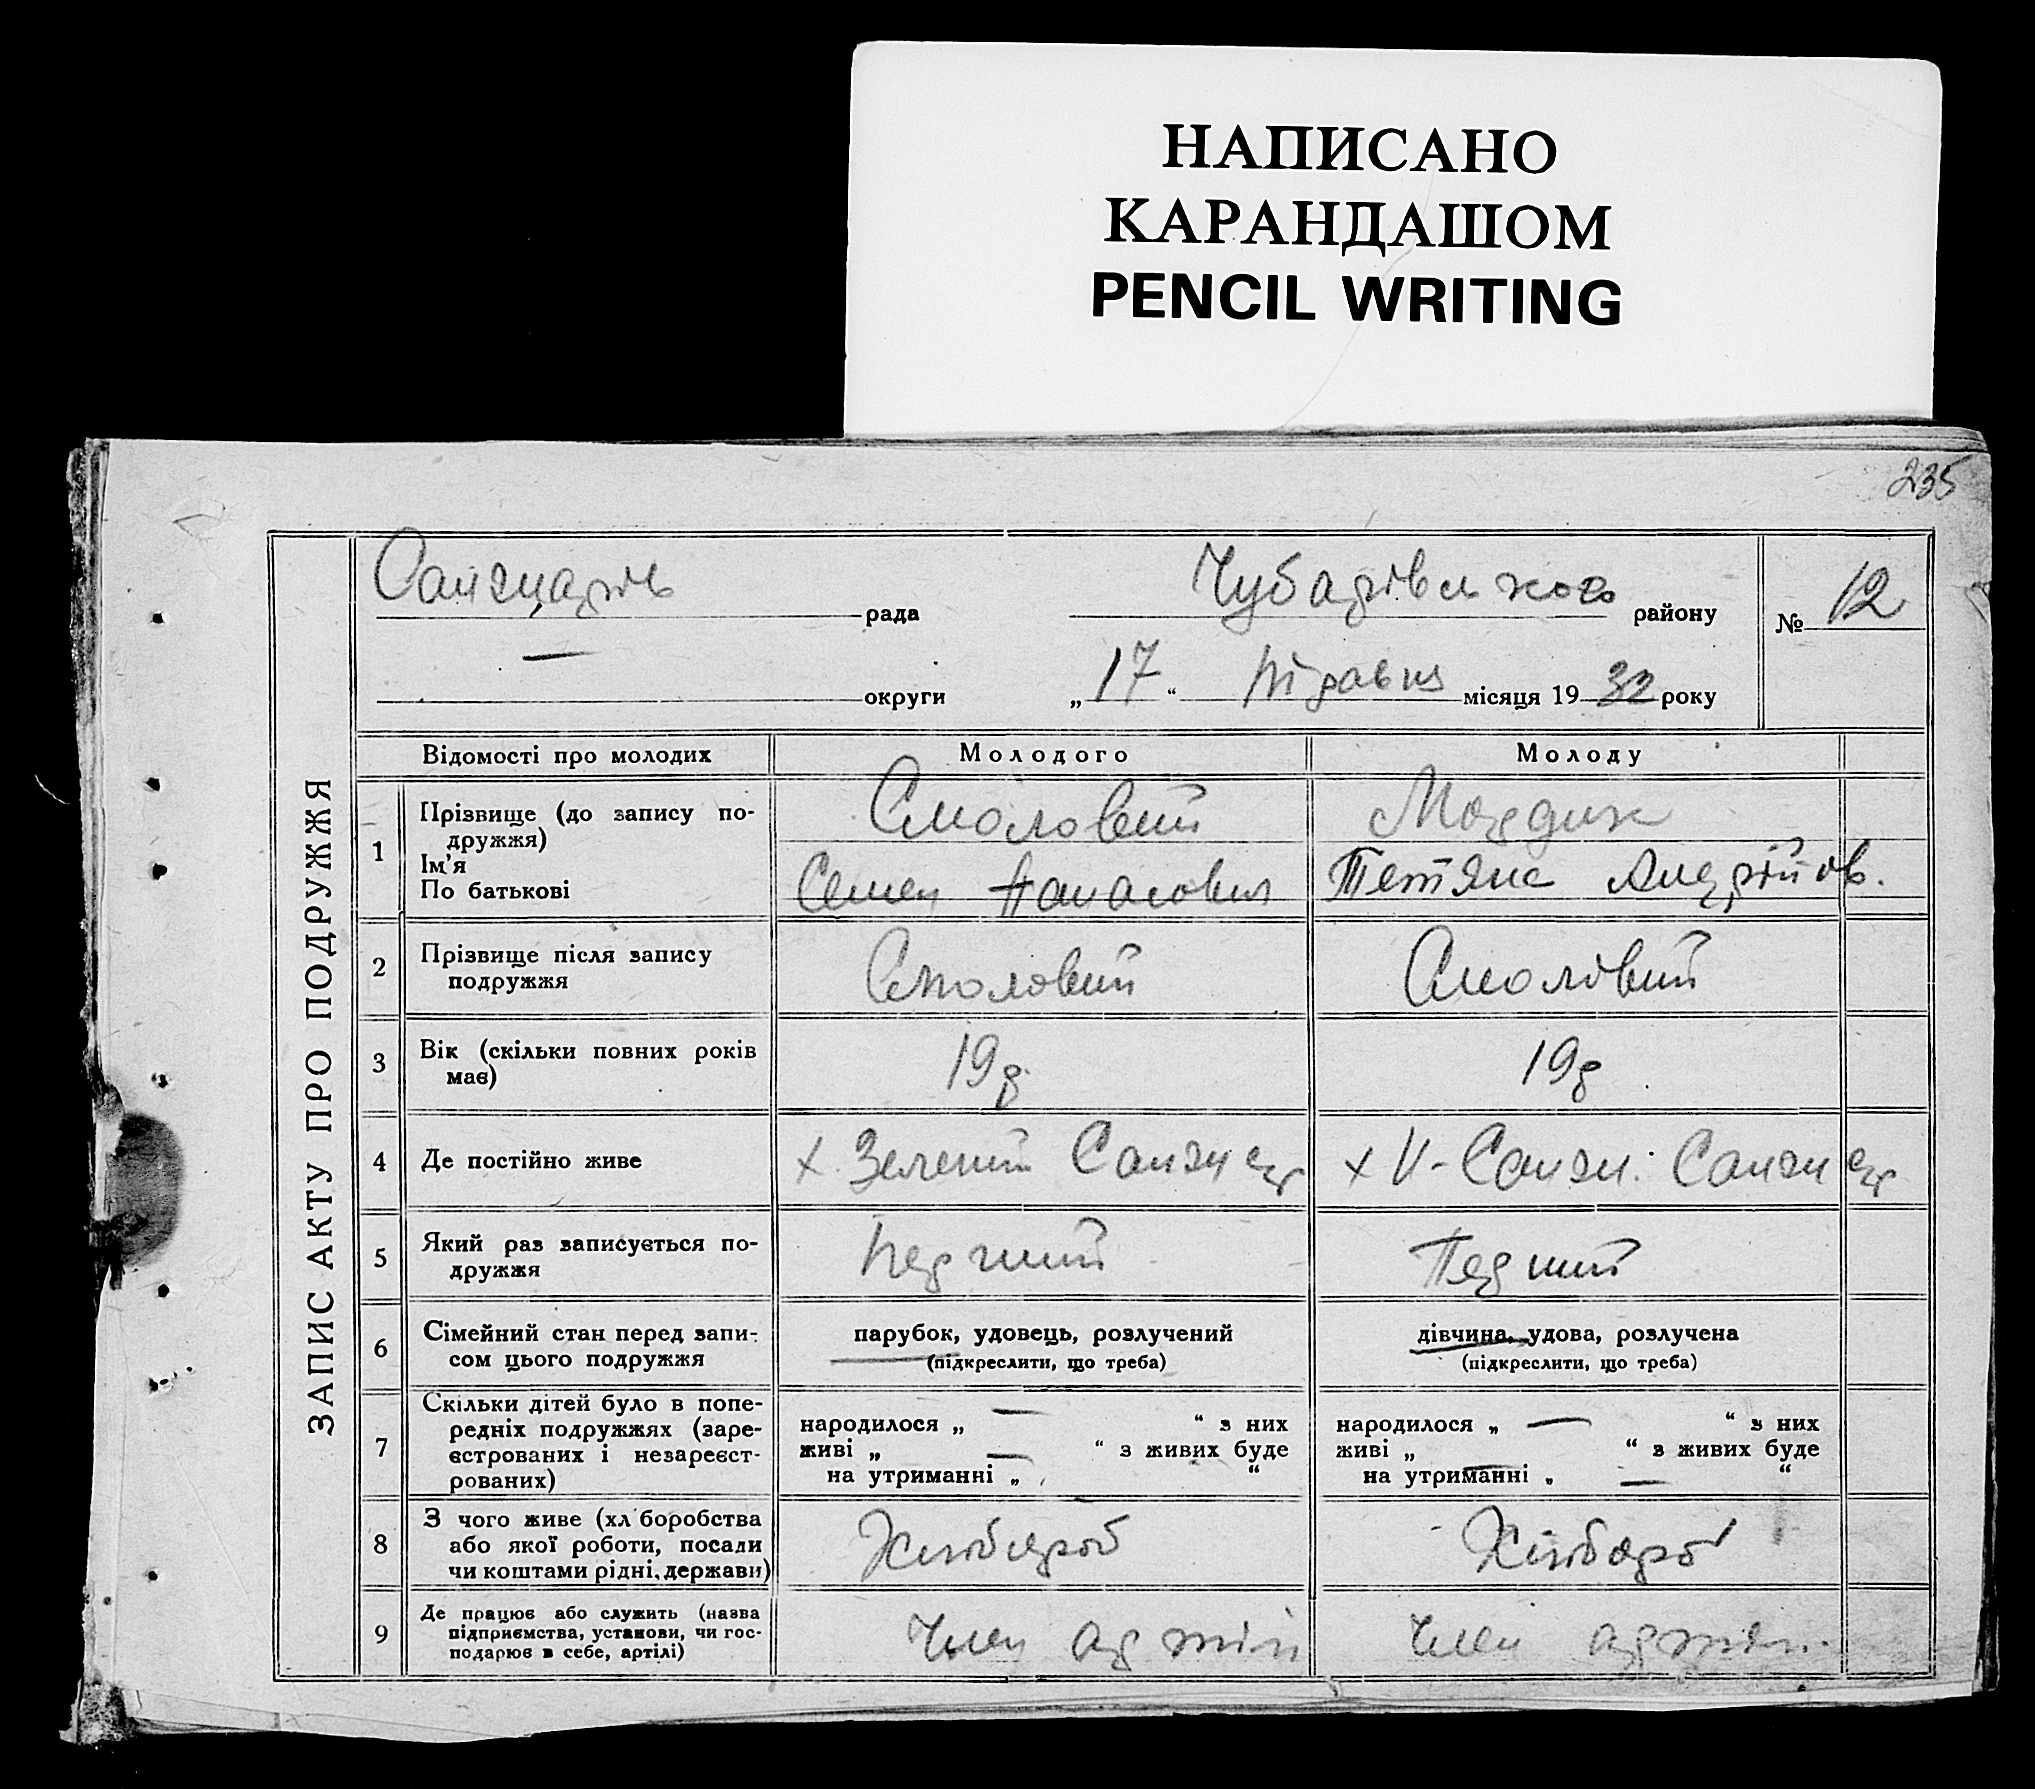 НАПИСАНО
КАРАНДАШОМ
PENCIL WRITING
235
ЗАПИС АКТУ ПРО ПОДРУЖЖЯ
рада Чубарівського району № 12
— округи „ 17 “ травня місяця 19 32 року
Відомості про молодих Молодого Молоду
1 Прізвище (до запису по-
дружжя)
Ім'я
По батькові
Смоловий
Семен Панасович
Тетяна Андрійов.
2 Прізвище після запису
подружжя
Смоловий Смоловий
3 Вік (скільки повних років
має)
19 р. 19 р
4 Де постійно живе
х. Зелений
5 Який раз записується по-
дружжя
Перший Перший
6 Сімейний стан перед запи-
сом цього подружжя
парубок, удовець, розлучений
(підкреслити, що треба)
дівчина, удова, розлучена
(підкреслити, що треба)
7 Скільки дітей було в попе-
редніх подружжях (заре-
єстрованих і незареєст-
рованих)
народилося „ — “ з них
живі „ — “ з живих буде
на утриманні „ “
народилося „ — “ з них
живі „ — “ з живих буде
на утриманні „ — “
8 З чого живе (хл боробства
або якої роботи, посади
чи коштами рідні, держави)
Хлібороб Хлібороб
9 Де працює або служить (назва
підприємства, установи, чи гос-
подарює в себе, артілі)
Член артіл Член артіл.